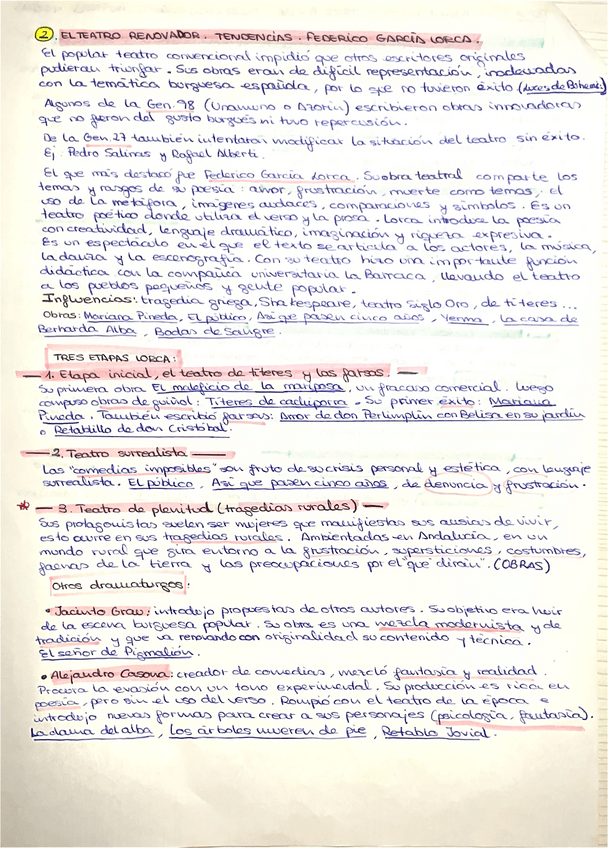 2. EL TEATRO RENOVADOR. TENDENCIAS. FEDERICO GARCÍA LORCA.
El popular teatro convencional impidió que otros escritores originales
pudieran triunfar. Sus obras eran de difícil representación, inadecuadas
con la temática burguesa española, por lo que no tuvieron éxito (Luces de Bohemia)
Algunos de la Gen.98 (Unamuno o Azorín) escribieron obras innovadoras
que no fueron del gusto burgués ni tuvo repercusión.
De la Gen.27 también intentaron modificar la situación del teatro sin éxito.
Ej. Pedro Salinas y Rafael Alberti.
El que más destacó fue Federico García Lorca. Su obra teatral comparte los
temas y rasgos de su poesía: amor, frustración, muerte como temas, el
uso de la metáfora, imágenes audaces, comparaciones y símbolos. Es un
teatro poético donde utiliza el verso y la prosa. Lorca introduce la poesía
con creatividad, lenguaje dramático, imaginación y riqueza expresiva.
Es un espectáculo en el que el texto se articula a los actores, la música,
la danza y la escenografía. Con su teatro hizo una importante función
didáctica con la compañía universitaria la Barraca, llevando el teatro
a los pueblos pequeños y gente popular.
Influencias: tragedia griega, Shakespeare, teatro Siglo Oro, de títeres...
Obras: Mariana Pineda, El público, Así que pasen cinco años, Yerma, la casa de
Bernarda Alba, Bodas de Sangre.
TRES ETAPAS LORCA:
1. Etapa inicial, el teatro de títeres y las farsas.
Su primera obra El maleficio de la mariposa, un fracaso comercial. Luego
compuso obras de guiñol: Títeres de cachiporra. Su primer éxito: Mariana
Pineda. También escribió farsas: Amor de don Perlimplín con Belisa en su jardín
o Retablillo de don Cristóbal.
2. Teatro surrealista
Las "comedias imposibles" son fruto de su crisis personal y estética, con lenguaje
surrealista. El público, Así que pasen cinco años, de denuncia y frustración.
* 3. Teatro de plenitud (tragedias rurales)
Sus protagonistas suelen ser mujeres que manifiestas sus ansias de vivir,
esto ocurre en sus tragedias rurales. Ambientadas en Andalucía, en un
mundo rural que gira entorno a la frustración, supersticiones, costumbres,
faenas de la tierra y las preocupaciones por el "qué dirán". (OBRAS)
Otros dramaturgos:
• Jacinto Grau: introdujo propuestas de otros autores. Su objetivo era huir
de la escena burguesa popular. Su obra es una mezcla modernista y de
tradición y que va renovando con originalidad su contenido y técnica.
El señor de Pigmalión.
• Alejandro Casona: creador de comedias, mezcló fantasía y realidad.
Procura la evasión con un tono experimental. Su producción es rica en
poesía, pero sin el uso del verso. Rompió con el teatro de la época e
introdujo nuevas formas para crear a sus personajes (psicología, fantasía).
La dama del alba, Los árboles mueren de pie, Retablo Jovial.